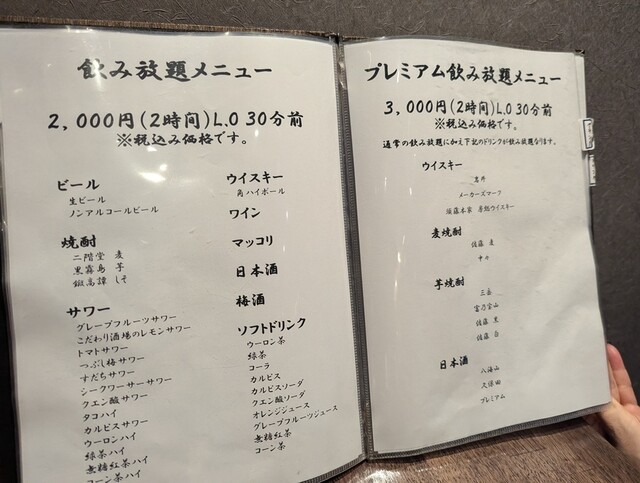 飲み放題メニュー
2,000円(2時間)L.O 30分前
※税込み価格です。
ビール
生ビール
ノンアルコールビール
焼酎
二階堂 麦
黒霧島 芋
鍛高譚 しそ
サワー
グレープフルーツサワー
こだわり酒場のレモンサワー
トマトサワー
つぶし梅サワー
すだちサワー
シークワーサーサワー
クエン酸サワー
タコハイ
カルピスサワー
ウーロンハイ
緑茶ハイ
無糖紅茶ハイ
コーン茶ハイ
ウイスキー
角ハイボール
ワイン
マッコリ
日本酒
梅酒
ソフトドリンク
ウーロン茶
緑茶
コーラ
カルピス
カルピスソーダ
クエン酸ソーダ
オレンジジュース
グレープフルーツジュース
無糖紅茶
コーン茶
プレミアム飲み放題メニュー
3,000円(2時間)L.O 30分前
※税込み価格です。
通常の飲み放題に加え下記のドリンクが飲み放題なります。
ウイスキー
岩井
メーカーズマーク
須藤本家 ウイスキー
麦焼酎
佐藤 麦
中々
芋焼酎
三岳
富乃宝山
佐藤 黒
佐藤 白
日本酒
八海山
久保田
プレミアム